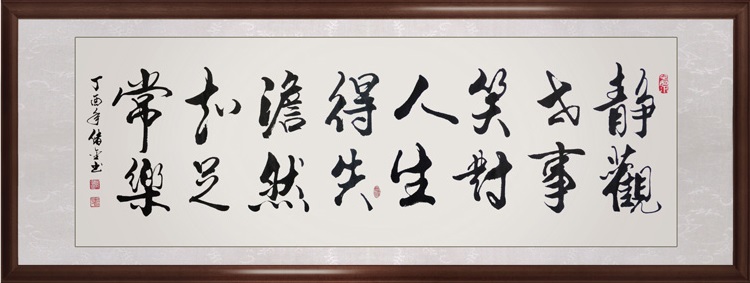 靜觀
世事
笑對
人生
得失
澹然
知足
常樂
丁酉年